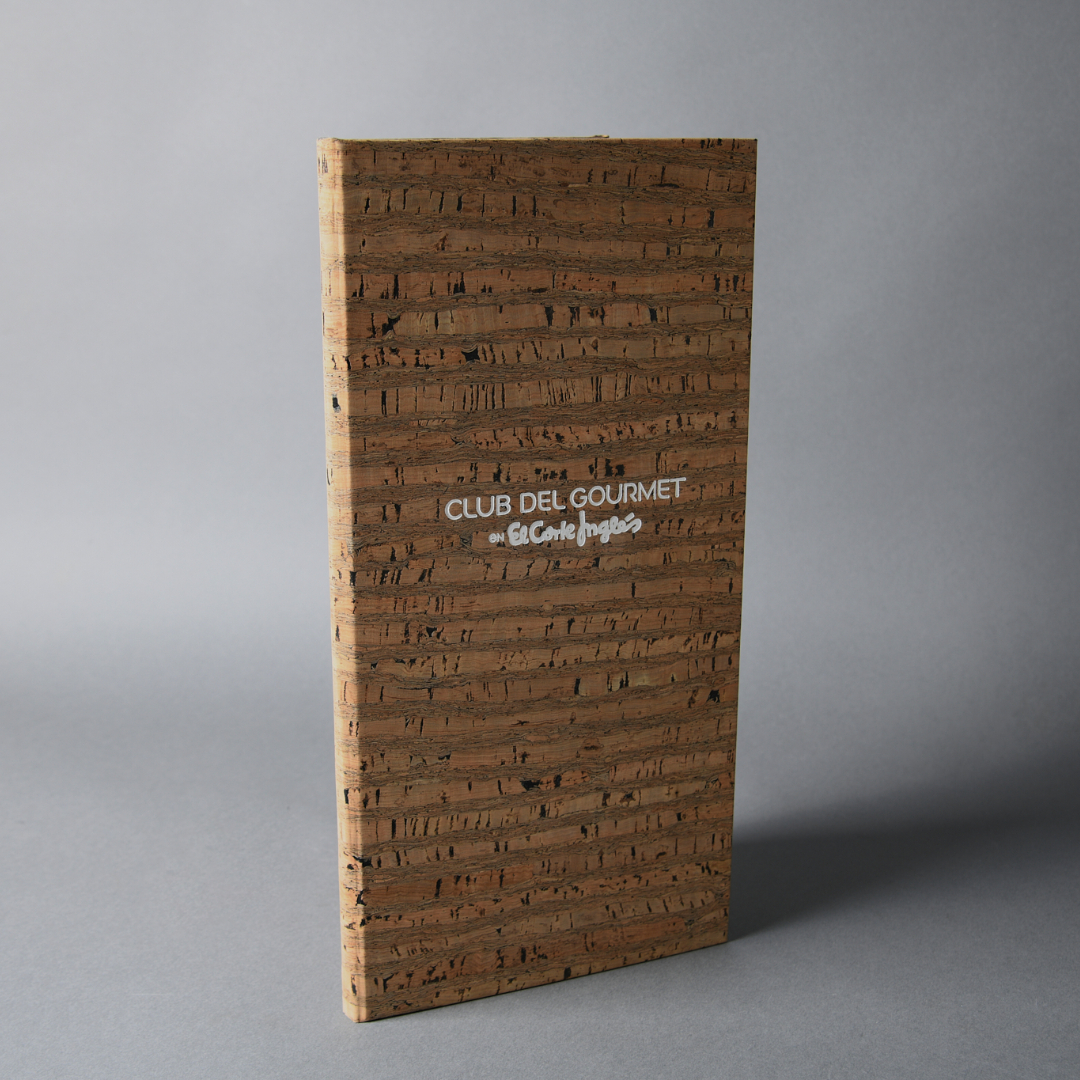 CLUB DEL GOURMET
EN El Corte Inglés